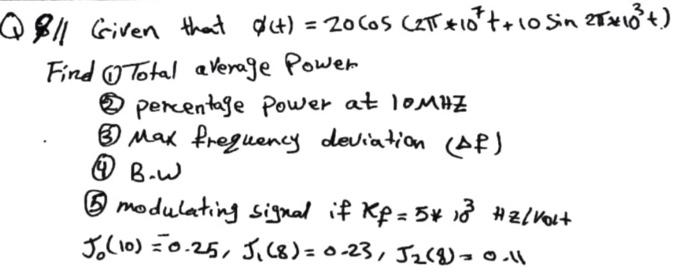 Q 8// Given that φ(t) = 20 Cos (2π*10⁷t + 10 Sin 2π*10³t)
Find ① Total average Power
② percentage Power at 10MHZ
③ Max frequency deviation (Δf)
④ B.w
⑤ modulating signal if Kf = 5* 10³ HZ/Volt
J₀(10) = -0.25, J₁(8) = 0.23, J₂(8) = 0.11